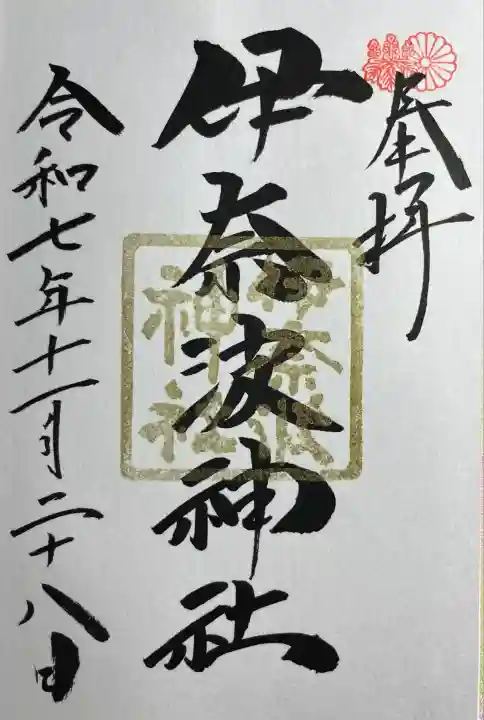 奉拝
伊奈波神社
伊奈波
神社
令和七年十一月二十八日